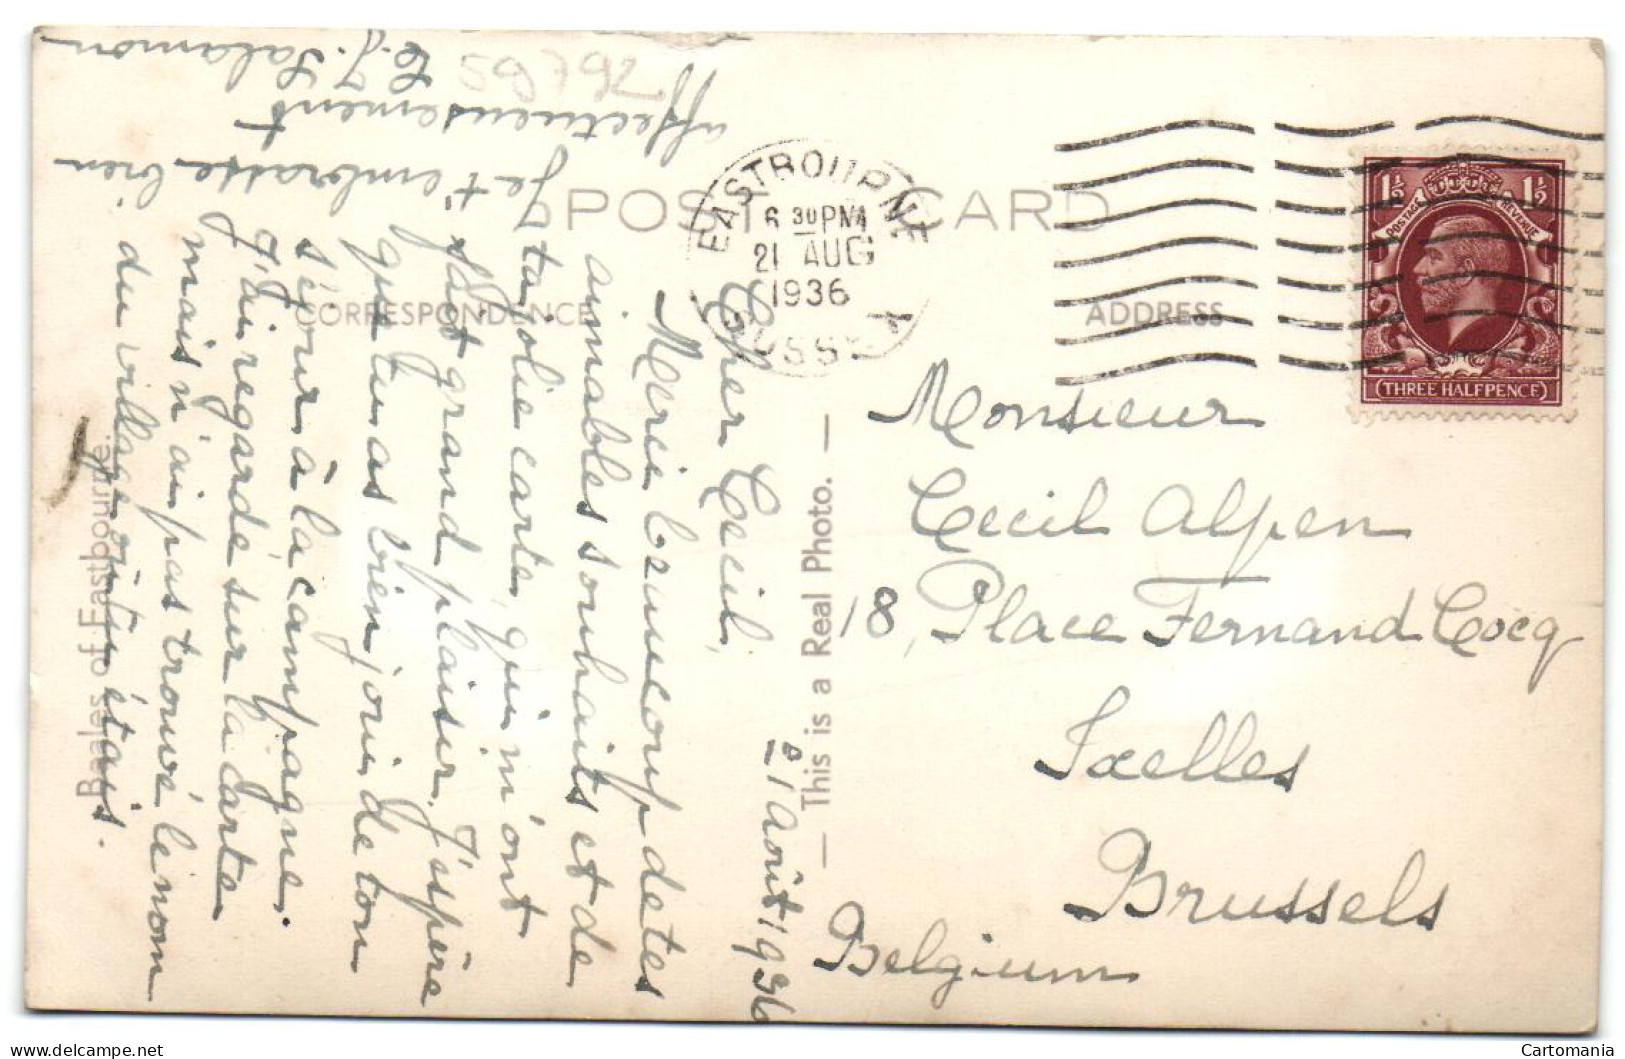 POST CARD
CORRESPONDENCE
ADDRESS
EASTBOURNE
6 30 PM
21 AUG
1936
SUSSEX
1½ 1½
POSTAGE REVENUE
THREE HALFPENCE
59792
Monsieur
Cecil Alpen
18, Place Fernand Cocq
Ixelles
Brussels
Belgium
— This is a Real Photo. —
Baales of Eastbourne.
21 Août 1936
Cher Cecil,
Merci beaucoup de tes
aimables souhaits et de
ta jolie carte, qui m'ont
fait grand plaisir. J'espère
que tu as bien joui de ton
séjour à la campagne.
J'ai regardé sur la carte
mais n'ai pas trouvé le nom
du village où tu étais.
Je t'embrasse bien
affectueusement
C. J. Salamon
Cartomania
delcampe.net